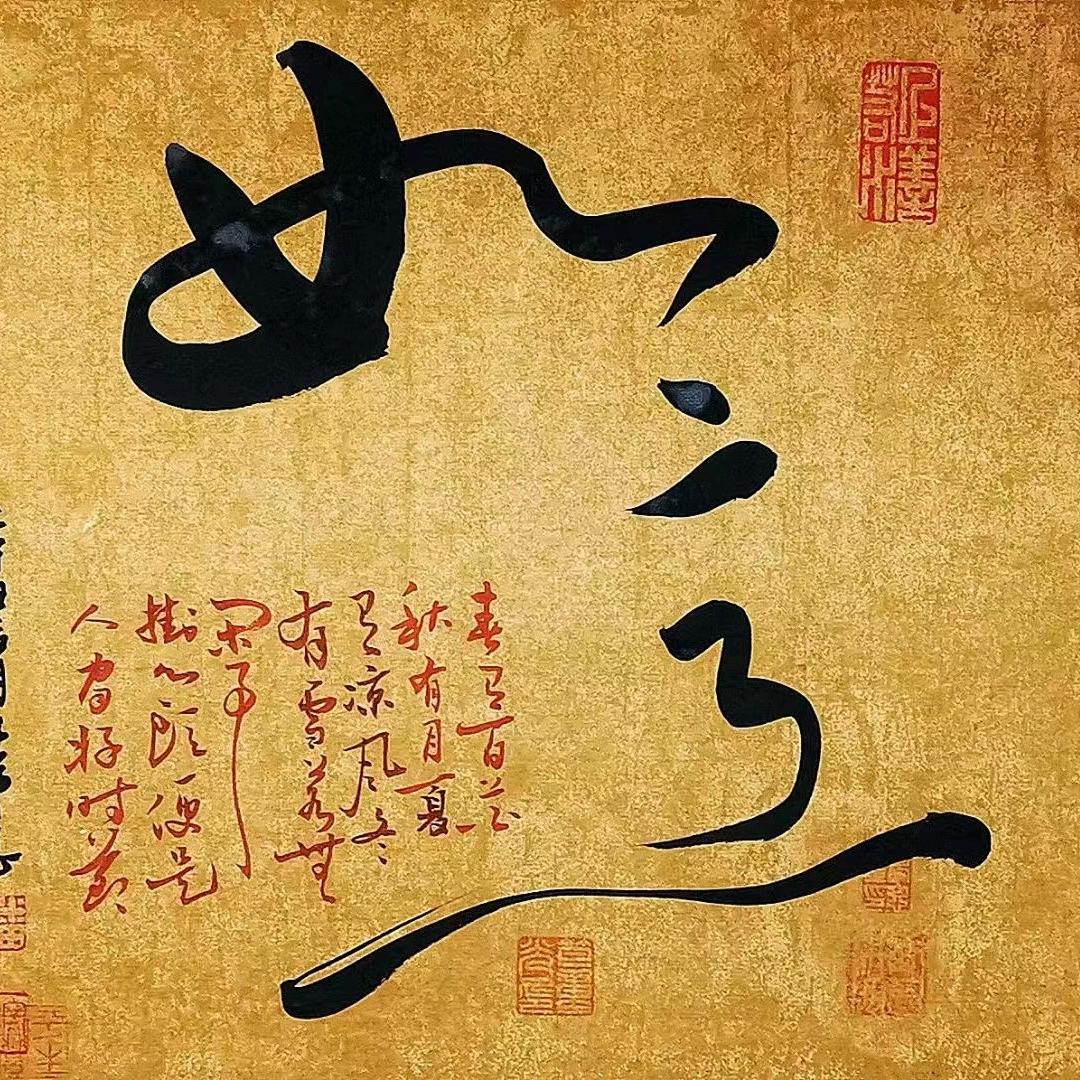 如意
春有百花
秋有月夏
有凉风冬
有雪若無
闲事
掛心頭便是
人间好时節